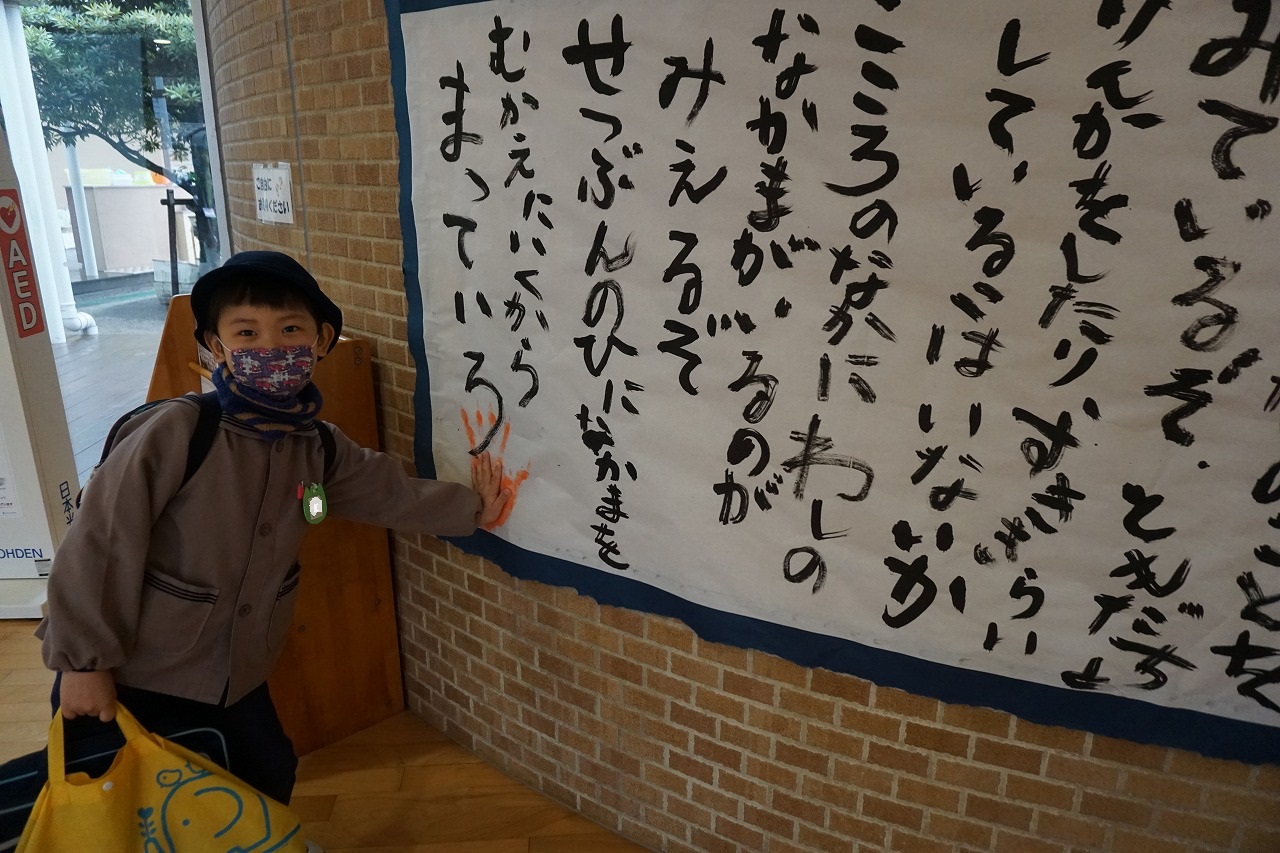 のことを
みているぞ。
ともだちと
けんかをしたり
すききらい
して、いる
こはいないか
こころのなかに
わしの
なかまが、いるのが
みえるぞ
せつぶんのひに
なかまを
むかえにいくから
まっていろ
ください
AED
日本光
OHDEN